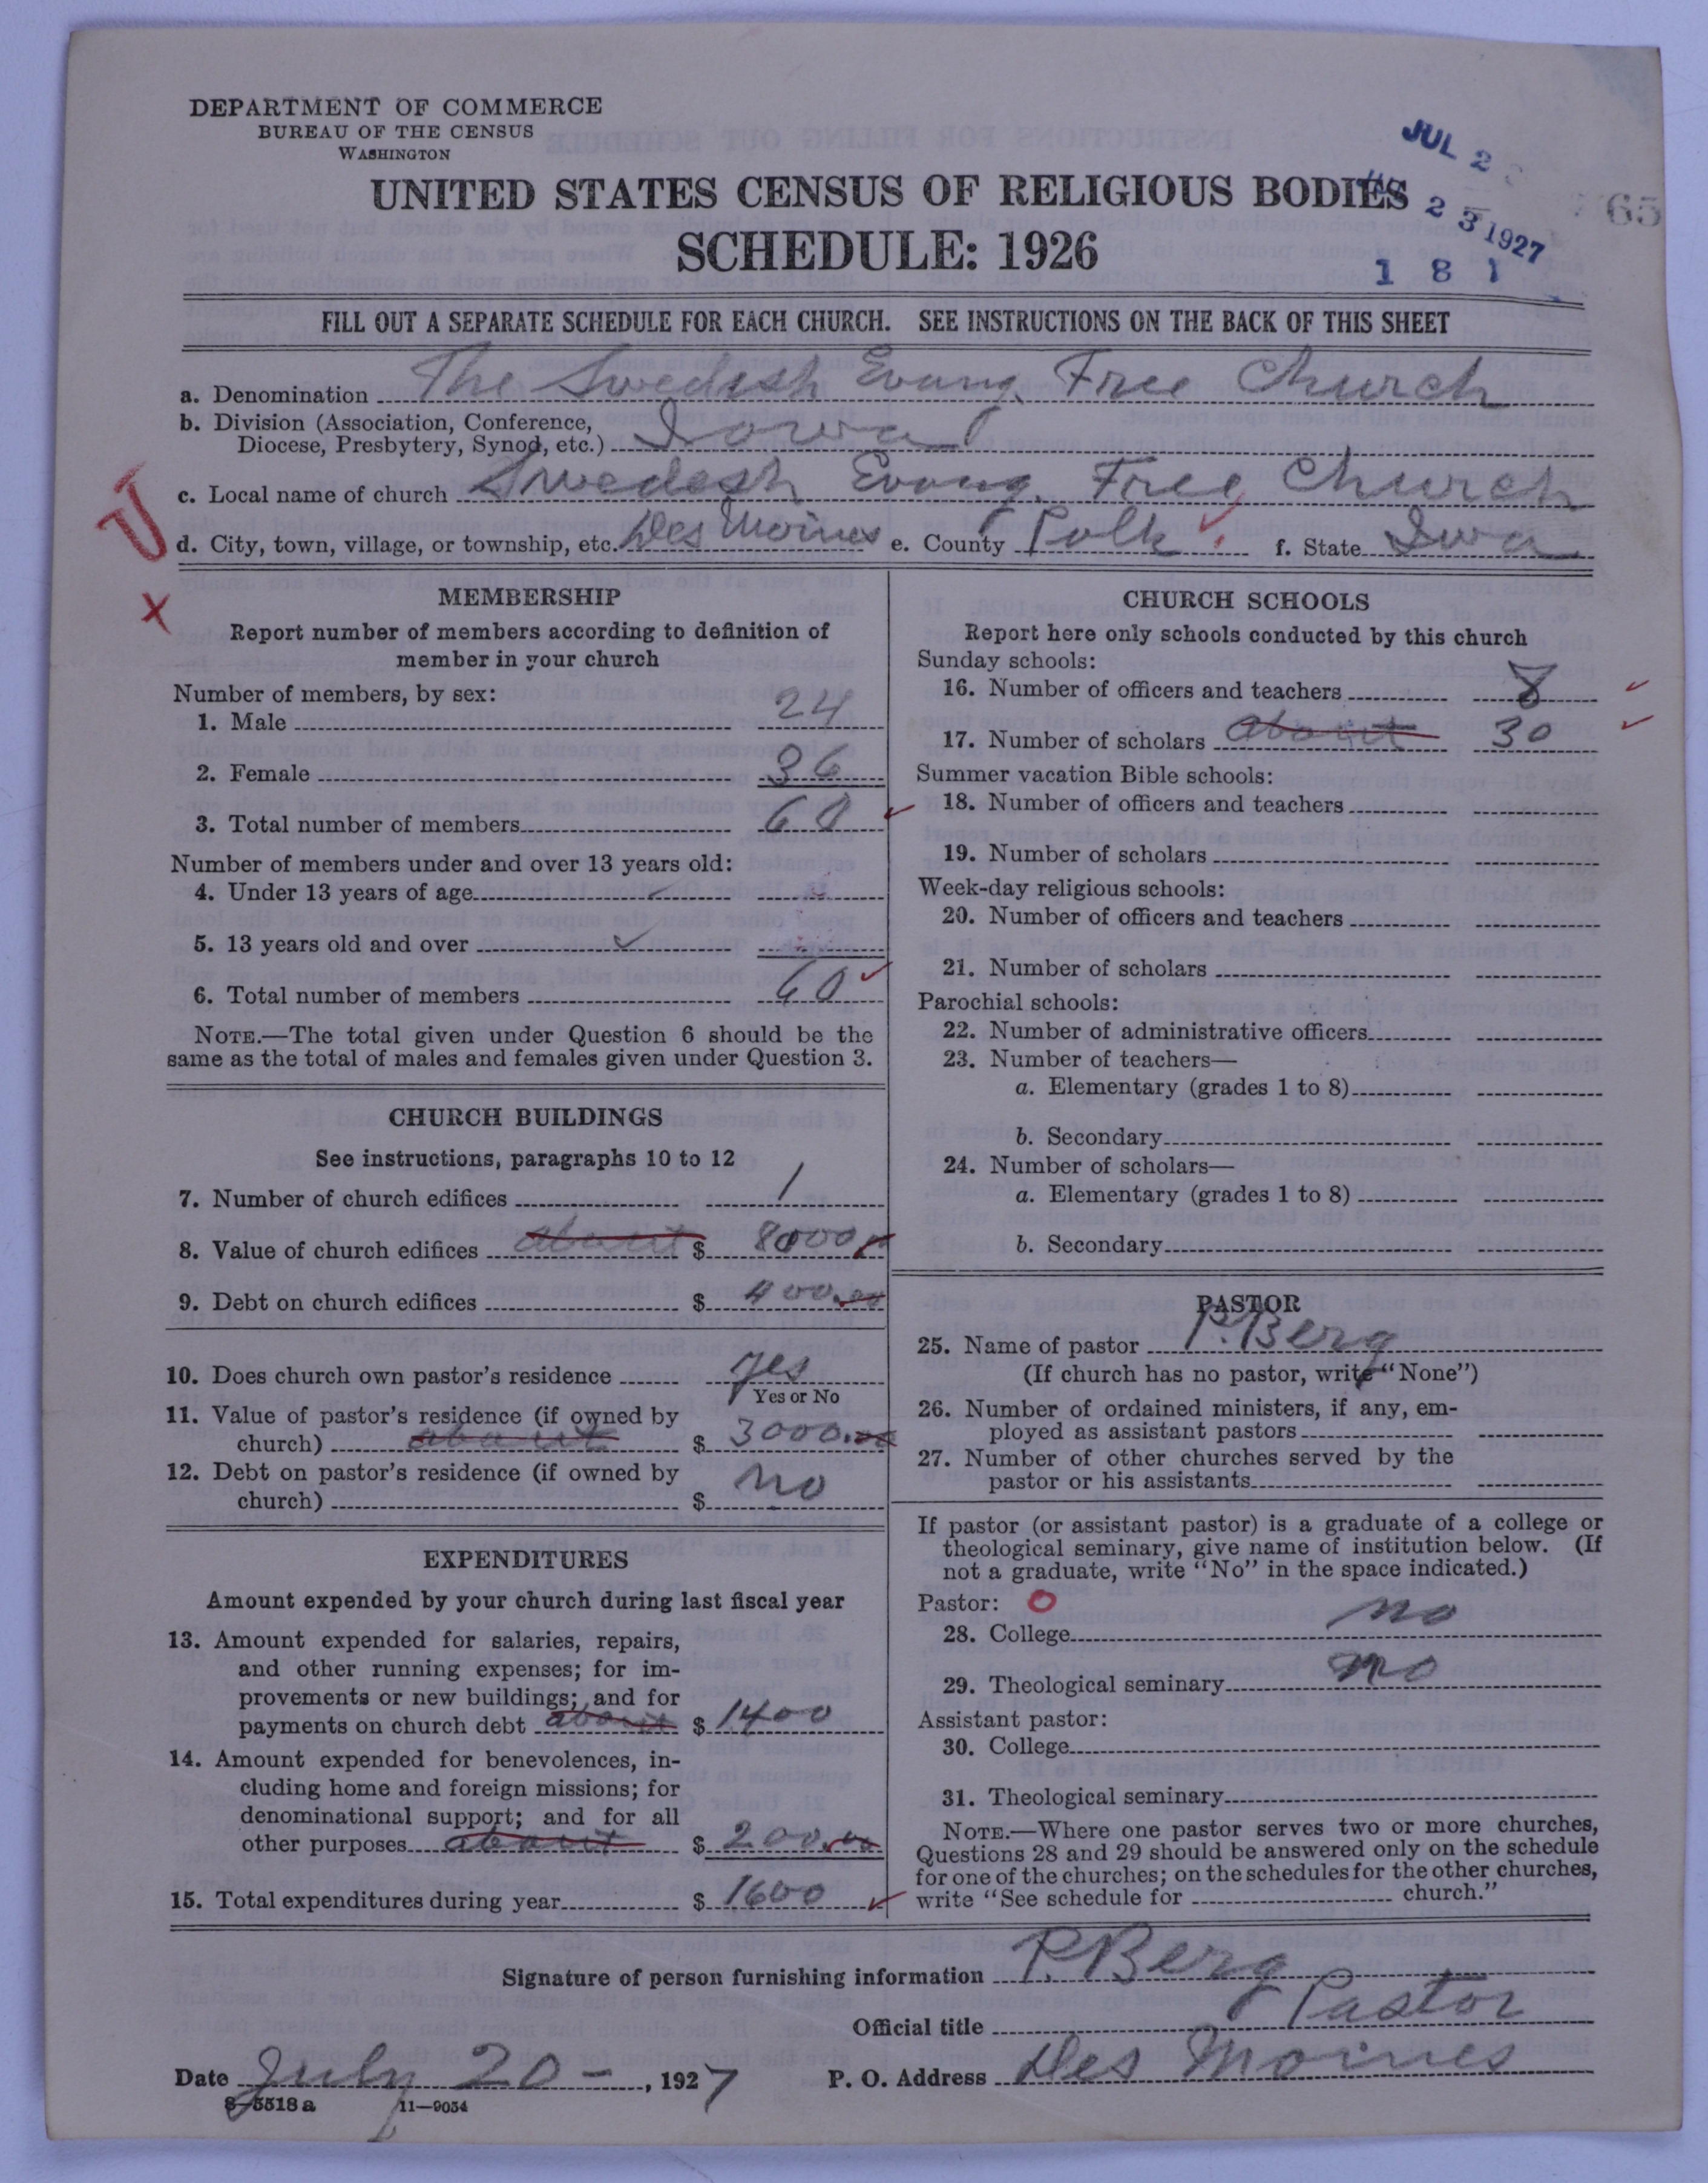 DEPARTMENT OF COMMERCE
BUREAU OF THE CENSUS
WASHINGTON
JUL 2
UNITED STATES CENSUS OF RELIGIOUS BODIES
2 3 1927
65
SCHEDULE: 1926
1 8 1
FILL OUT A SEPARATE SCHEDULE FOR EACH CHURCH. SEE INSTRUCTIONS ON THE BACK OF THIS SHEET
a. Denomination The Swedish Evang. Free Church
b. Division (Association, Conference,
Diocese, Presbytery, Synod, etc.) Iowa
c. Local name of church Swedesh Evang. Free Church
d. City, town, village, or township, etc. Des Moines e. County Polk f. State Iwa
MEMBERSHIP
Report number of members according to definition of
member in your church
Number of members, by sex:
1. Male 24
2. Female 36
3. Total number of members 60
Number of members under and over 13 years old:
4. Under 13 years of age
5. 13 years old and over
6. Total number of members 60
NOTE.—The total given under Question 6 should be the
same as the total of males and females given under Question 3.
CHURCH BUILDINGS
See instructions, paragraphs 10 to 12
7. Number of church edifices 1
8. Value of church edifices about $ 8000
9. Debt on church edifices $ 400.00
10. Does church own pastor's residence yes
Yes or No
11. Value of pastor's residence (if owned by
church) about $ 3000.00
12. Debt on pastor's residence (if owned by
church) $ no
EXPENDITURES
Amount expended by your church during last fiscal year
13. Amount expended for salaries, repairs,
and other running expenses; for im-
provements or new buildings; and for
payments on church debt about $ 1400
14. Amount expended for benevolences, in-
cluding home and foreign missions; for
denominational support; and for all
other purposes about $ 200.00
15. Total expenditures during year $ 1600
CHURCH SCHOOLS
Report here only schools conducted by this church
Sunday schools:
16. Number of officers and teachers 8
17. Number of scholars about 30
Summer vacation Bible schools:
18. Number of officers and teachers
19. Number of scholars
Week-day religious schools:
20. Number of officers and teachers
21. Number of scholars
Parochial schools:
22. Number of administrative officers
23. Number of teachers—
a. Elementary (grades 1 to 8)
b. Secondary
24. Number of scholars—
a. Elementary (grades 1 to 8)
b. Secondary
PASTOR
25. Name of pastor P. Berg
(If church has no pastor, write "None")
26. Number of ordained ministers, if any, em-
ployed as assistant pastors
27. Number of other churches served by the
pastor or his assistants
If pastor (or assistant pastor) is a graduate of a college or
theological seminary, give name of institution below. (If
not a graduate, write "No" in the space indicated.)
Pastor: O
28. College no
29. Theological seminary no
Assistant pastor:
30. College
31. Theological seminary
NOTE.—Where one pastor serves two or more churches,
Questions 28 and 29 should be answered only on the schedule
for one of the churches; on the schedules for the other churches,
write "See schedule for church."
Signature of person furnishing information P. Berg
Official title Pastor
Date July 20 - , 1927 P. O. Address Des Moines
8—5518 a 11—9054